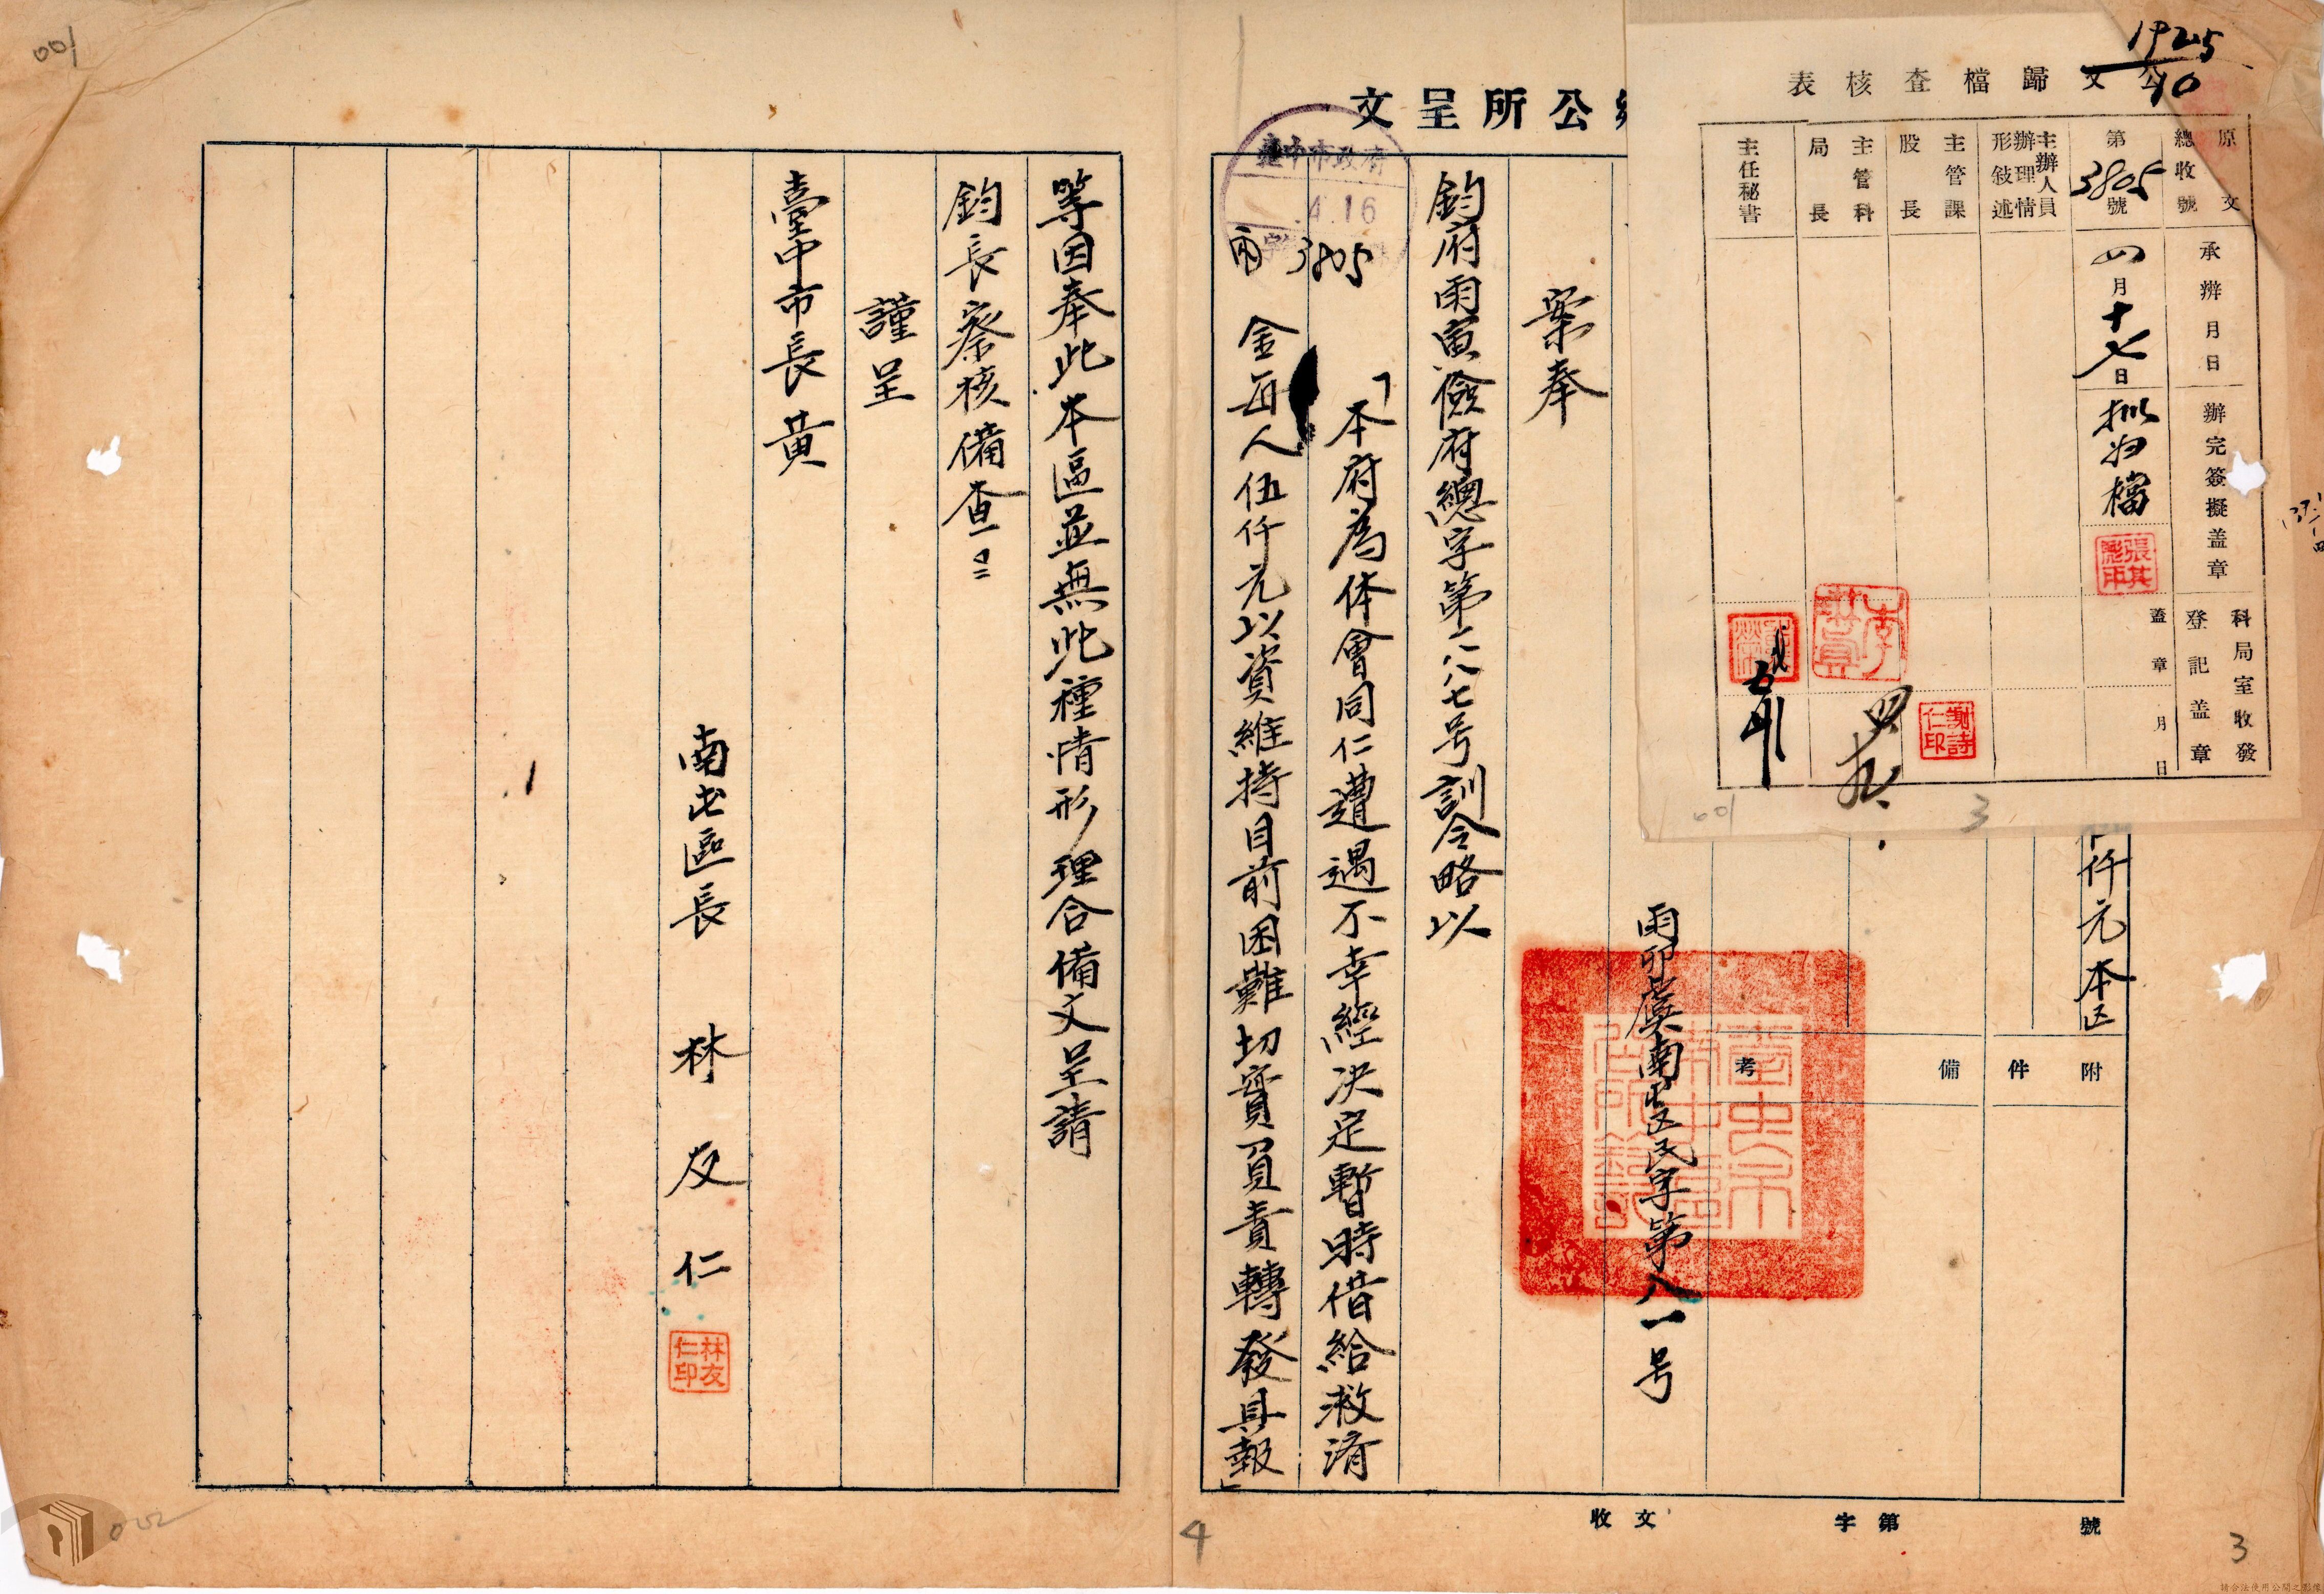 1925
10
公文歸檔查核表
原文
總收號
第3805號
主辦人員
辦理情
形敍述
主管課
股長
主管科
局長
主任秘書
承辦月日
四月十七日
辦完簽擬蓋章
批归檔
科局室收發
登記蓋章
蓋章
月
日
謝詩
仁印
001
3
公所呈文
仟元本区
附件
備考
雨卯虞南屯区民字第八一号
案奉
鈞府雨寅儉府總字第二八七号訓令略以
「本府為体會同仁遭遇不幸經決定暫時借給救濟
金每人伍仟元以資維持目前困難切實負責轉發具報」
臺中市政府
4.16
雨 3805
等因奉此本區並無此種情形理合備文呈請
鈞長察核備查
謹呈
臺中市長黃
南屯區長 林友仁
林友
仁印
收文
字第
號
001
002
4
3